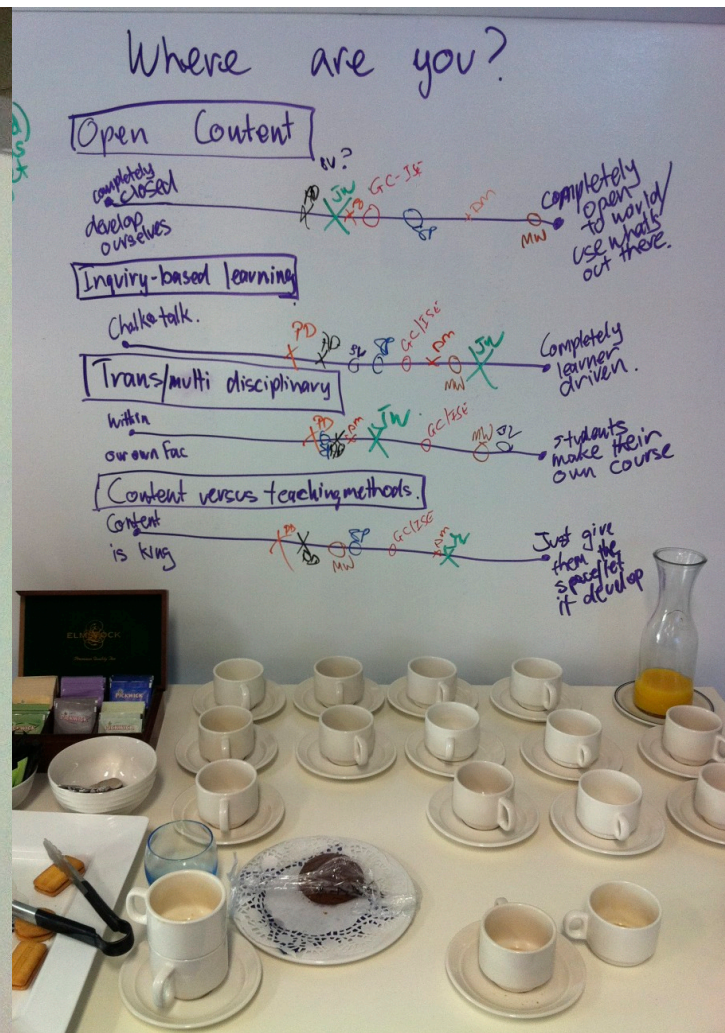 Where are you?
Open Content
completely closed
develop
ourselves
AD
?
JW
GC-ISE
SP
DM
MW
Completely
open
to world/
use whats
out there.
Inquiry-based learning
Chalk & talk.
PD
AD
SL
SP
GC/ISE
DM
MW
JW
Completely
learner
driven.
Trans/multi disciplinary
within
our own fac
PD
SP
AD
DM
JW
GC/ISE
MW
SL
students
make their
own course
Content versus teaching methods.
Content
is king
PD
AD
MW
SP
GC/ISE
DM
JW
Just give
them the
space/let
it develop
PICKWICK